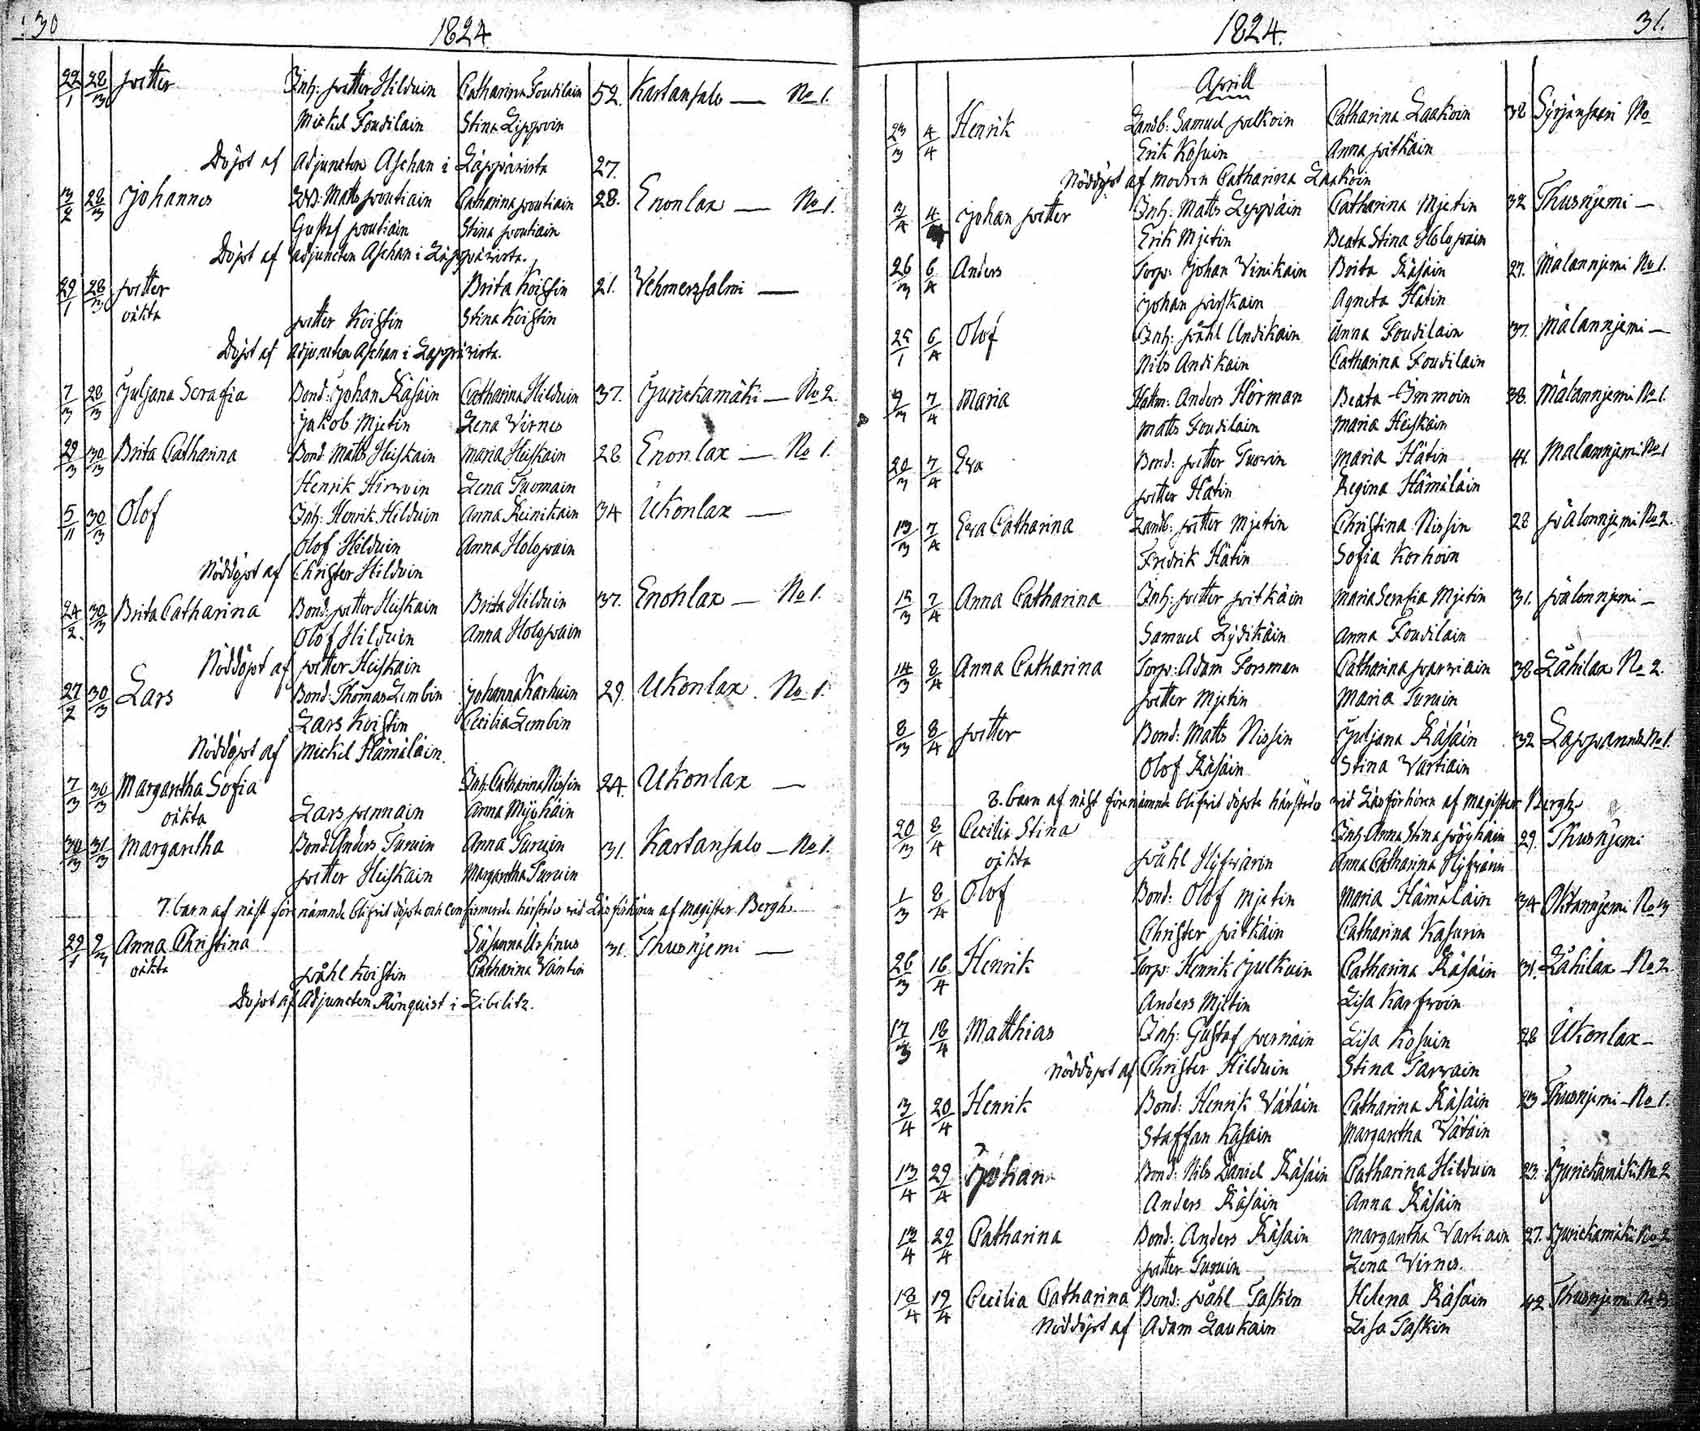 30
1824
22/1 28/3 petter Inh: petter Hilduin Catharina Foudilain 52. Kartansalo — No 1.
Mickel Foudilain Stina Lippoin
Döpt af Adjuncten Aschan i Läppävirta 27.
3/2 28/3 Johannes Matts poutiain Catharina poutiain 28. Enonlax — No 1.
Gustaf poutiain Stina poutiain
Döpt af adjuncten Aschan i Läppävirta.
29/1 28/3 petter Brita Koistin 21. Vehmersalmi —
oäkta petter Koistin Stina Koistin
Döpt af Adjuncten Aschan i Läppävirta.
7/3 28/3 Juljana Serafia Bond: Johan Räsäin Catharina Hilduin 37. Jurickamäki — No 2.
Jakob Mjetin Lena Virnes
29/3 30/3 Brita Catharina Bond: Matts Heiskain Maria Heiskain 28 Enonlax — No 1.
Henrik Hirvoin Lena Tuomain
5/11 30/3 Olof Inh: Henrik Hilduin Anna Reinikain 34 Ukonlax —
Olof Hilduin Anna Holopain
Nöddöpt af Christer Hilduin
24/2. 30/3 Brita Catharina Bond: petter Heiskain Brita Hilduin 37. Enonlax — No 1.
Olof Hilduin Anna Holopain
Nöddöpt af petter Heiskain
27/2 30/3 Lars Bond: Thomas Lembin Johanna Karhuin 29. Ukonlax. No 1.
Lars Koistin Cecilia Lembin
Nöddöpt af Mickel Hämäläin.
7/3 30/3 Margaretha Sofia Inh: Catharina Nissin 24. Ukonlax —
oäkta Lars pennain Anna Myöhäin
30/3 31/3 Margaretha Bond: Anders Turuin Anna Turuin 31. Kartansalo — No 1.
petter Heiskain Margaretha Turuin
7. barn af näst förnämnde blifvit döpte och confirmerade härstädes vid Läsförhören af Magister Bergh.
29/1 2/3 Anna Christina Susanna Ursinus 31. Thusnjemi —
oäkta påhl Koistin Catharina Väntin
Döpt af Adjuncten Rönquist i Libelitz.
1824.
31.
Aprill
23/3 4/4 Henrik Landb: Samuel pulkoin Catharina Laakoin 38 Syrjänsaari No
Erik Kosuin Anna pitkäin
Nöddöpt af modren Catharina Laakoin
3/4 4/4 Johan petter Inh: Matts Leppäin Catharina Mjetin 32 Thusnjemi —
Erik Mjetin Beata Stina Holopain
26/3 6/4 Anders Torp: Johan Vinikain Brita Räsäin 27. Mälannjemi No 1.
Johan pirskain Agneta Hätin
25/1 6/4 Olof Inh: påhl Andikain Anna Foudilain 37. Mälannjemi —
Nils Andikain Catharina Foudilain
9/3 7/4 Maria Anders Hörman Beata Immoin 38. Mälannjemi No 1.
Matts Foudilain Maria Heiskain
20/3 7/4 Eva Bond: petter Tuovin Maria Hätin 41. Mälannjemi No 1
petter Hätin Regina Hämäläin
13/3 7/4 Eva Catharina Landb: petter Mjetin Christina Nissin 28 pälonnjemi No 2.
Fredrik Hätin Sofia Korhoin
15/3 7/4 Anna Catharina Inh: petter pitkäin Maria Serafia Mjetin 31. pälonnjemi —
Samuel Lydikäin Anna Foudilain
14/3 8/4 Anna Catharina Torp: Adam Forsman Catharina parviain 38 Lähilax No 2.
petter Mjetin Maria Turuin
8/3 8/4 petter Bond: Matts Nissin Juljana Räsäin 32 No 1.
Olof Räsäin Stina Vartiain
8. barn af näst förenämnde blifvit döpte härstädes vid Läsförhören af Magister Bergh.
20/3 8/4 Cecilia Stina Inh: Anna Stina pöyhäin 29. Thusnjemi
oäkta påhl Hyfvärin Anna Catharina Hyfvärin
1/3 8/4 Olof Bond: Olof Mjetin Maria Hämäläin 34 No 13
Christer pitkäin Catharina Kasurin
26/3 16/4 Henrik Torp: Henrik Julkuin Catharina Räsäin 31. Lähilax No 2.
Anders Mjetin Lisa Karfvoin
17/3 18/4 Matthias Inh: Gustaf pernäin Lisa Kosuin 28 Ukonlax —
Nöddöpt af Christer Hilduin Stina Tarvain
3/4 20/4 Henrik Bond: Henrik Vätäin Catharina Räsäin 23 Thusnjemi — No 1.
Staffan Räsäin Margaretha Vätäin
13/4 29/4 Johan Bond: Nils Daniel Räsäin Catharina Hilduin 23. Jurickamäki No 2
Anders Räsäin Anna Räsäin
12/4 29/4 Catharina Bond: Anders Räsäin Margaretha Vartiain 27. Jurickamäki No 2
petter Turuin Lena Virnes.
18/4 19/4 Cecilia Catharina Bond: påhl Taskin Helena Räsäin 42 Thusnjemi No
Nöddöpt af Adam Laukain Lisa Taskin